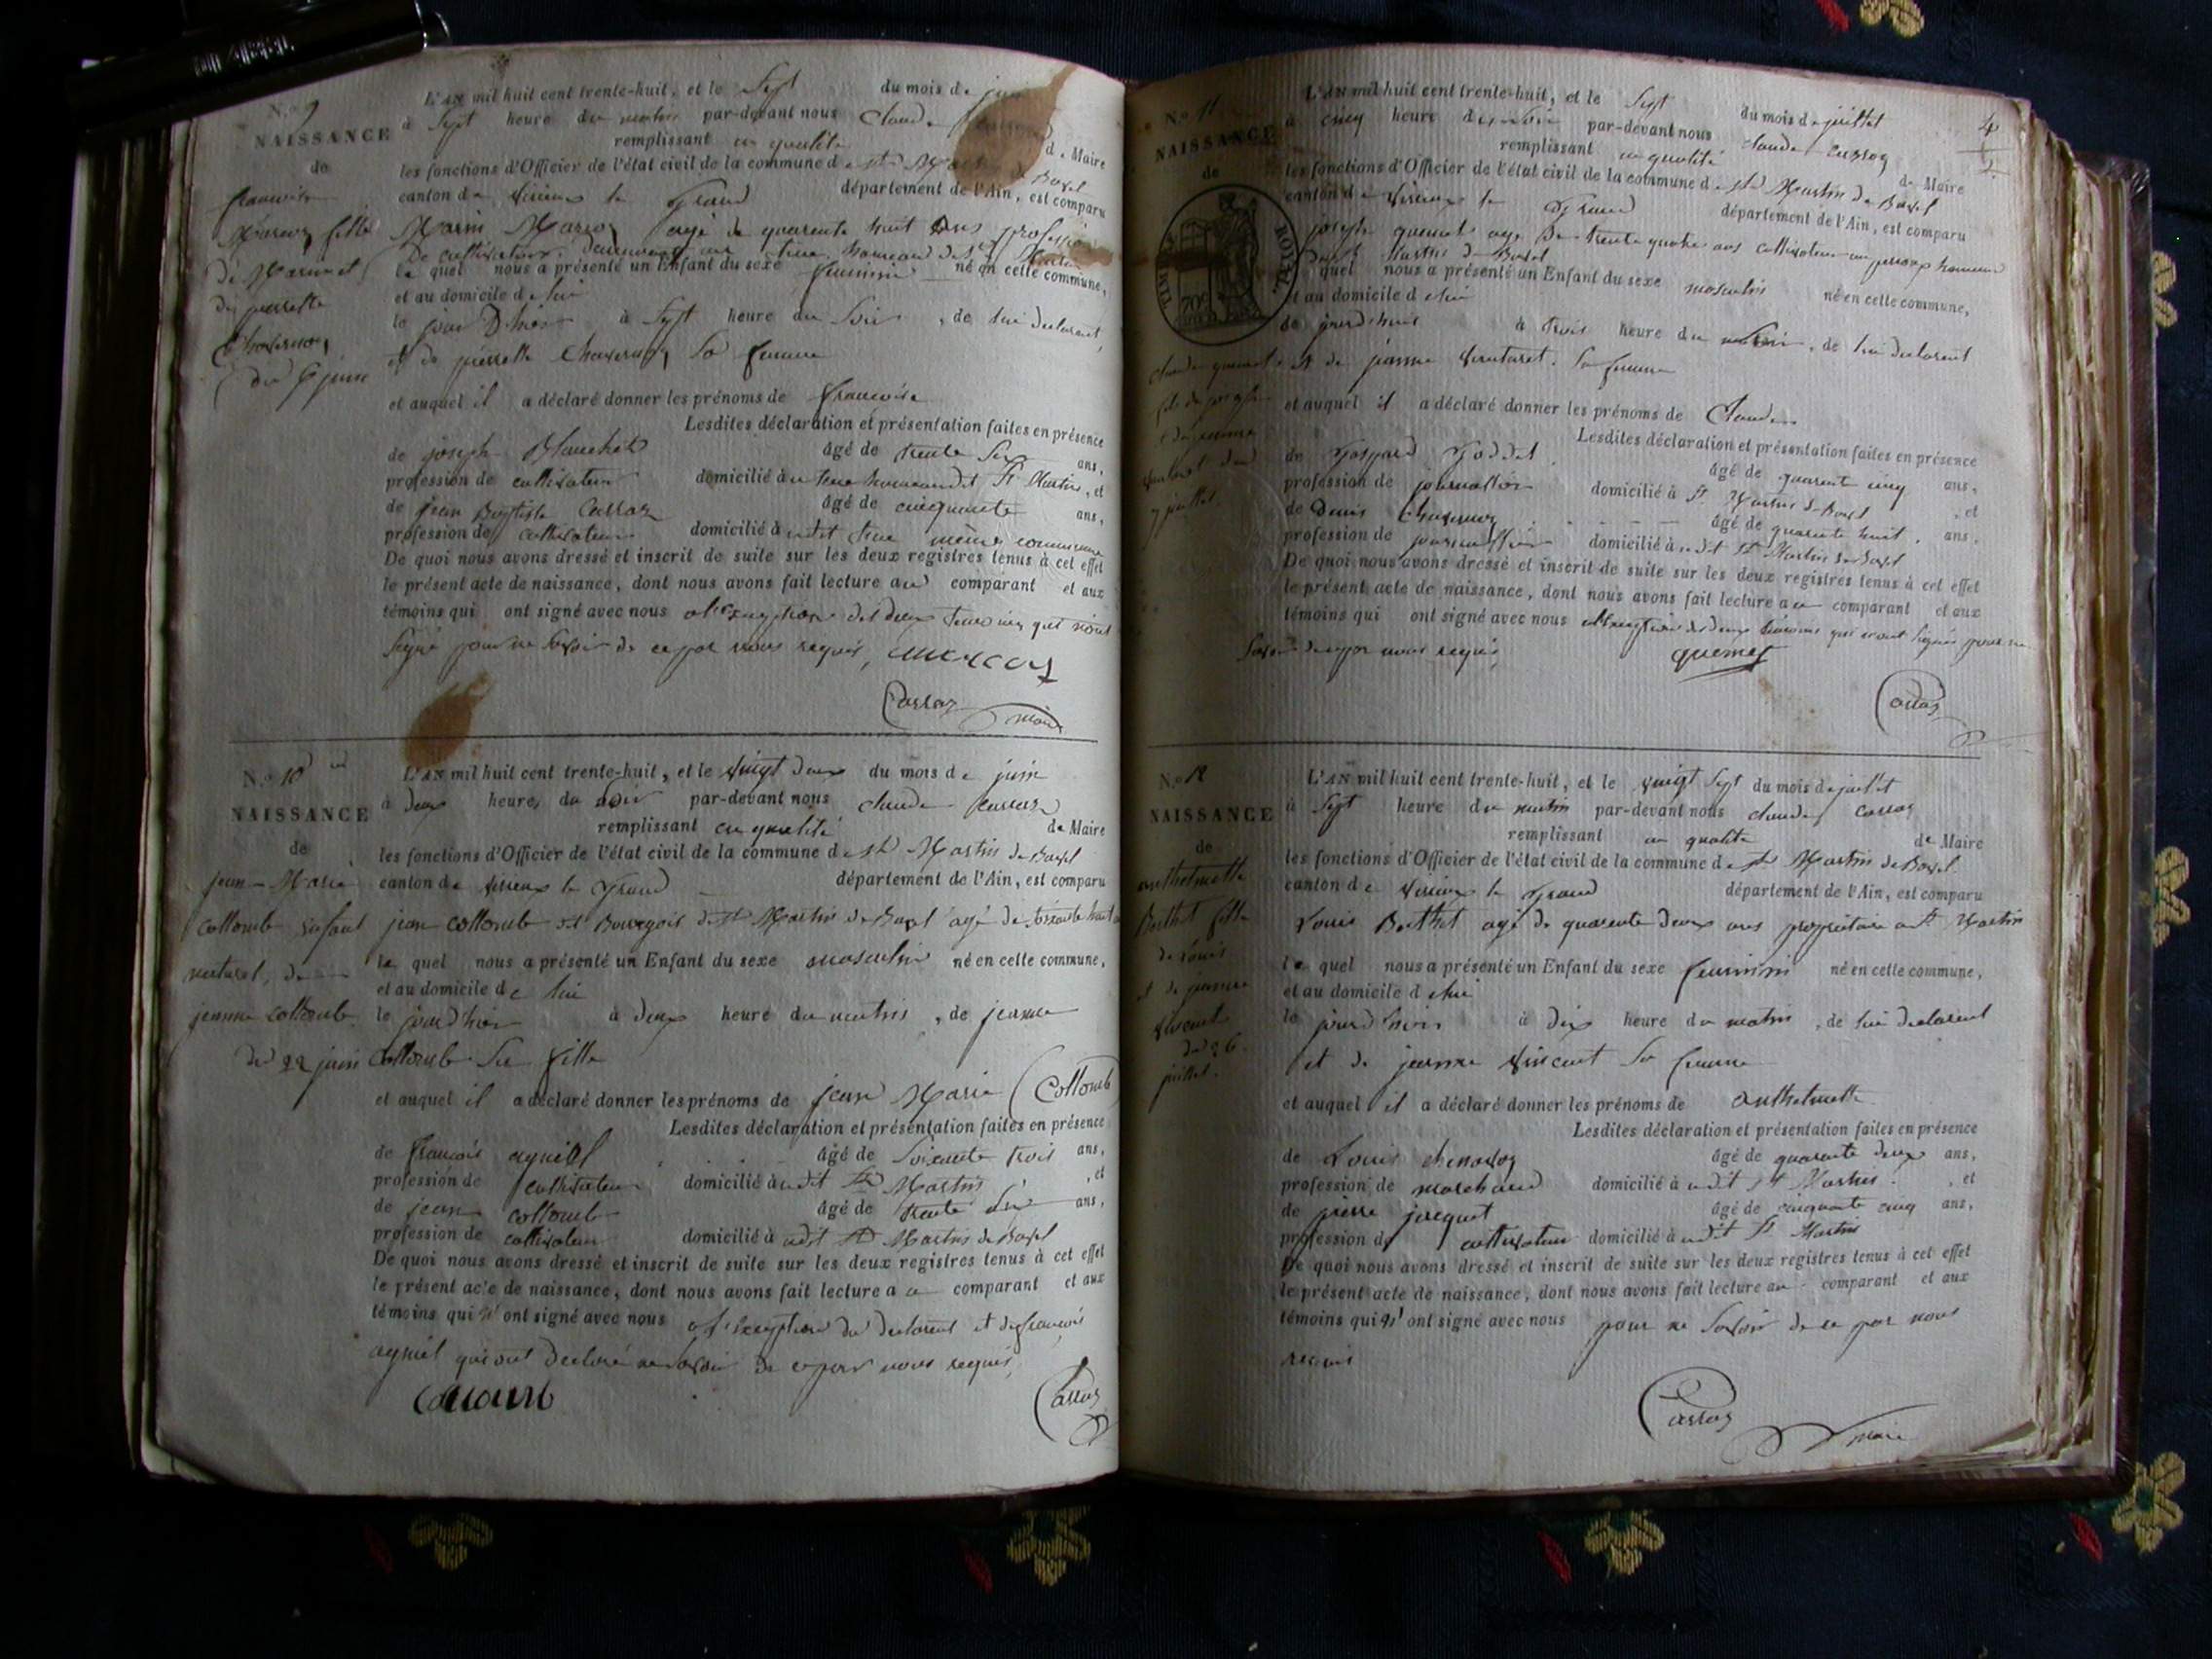 N.o 9
NAISSANCE
de
francoise
Marcoz fille
de Marin et
de pierrette
Chavernoz
du 6 juin
L'AN mil huit cent trente-huit, et le Sept du mois de juin
à Sept heure du matin par-devant nous Claude
remplissant en qualité de Maire
les fonctions d'Officier de l'état civil de la commune de St Martin de Bavel
canton de Virieux le Grand département de l'Ain, est comparu
Marin Marcoz agé de quarente huit ans profession
De cultivateur, demeurant au hameau de St Martin
le quel nous a présenté un Enfant du sexe feminin né en cette commune,
et au domicile de lui
le jour D'hier à Sept heure du Soir, de lui declarent
et de pierrette Chavernoz Sa femme
et auquel il a déclaré donner les prénoms de francoise
Lesdites déclaration et présentation faites en présence
de joseph Blanchet âgé de trente Six ans,
profession de cultivateur domicilié à hameau dit St Martin, et
de jean Baptiste Carraz âgé de cinquante ans,
profession de cultivateur domicilié à udit même commune
De quoi nous avons dressé et inscrit de suite sur les deux registres tenus à cet effet
le présent acte de naissance, dont nous avons fait lecture au comparant et aux
témoins qui ont signé avec nous a l'exception des deux temoins qui n'ont
Signé pour ne Savoir de ce par nous requis,
maire
N.o 10
NAISSANCE
de
jean-Marie
Collomb enfant
naturel, de
jeanne Collomb
du 22 juin
L'AN mil huit cent trente-huit, et le vingt deux du mois de juin
à deux heures du Soir par-devant nous claude
remplissant en qualité de Maire
les fonctions d'Officier de l'état civil de la commune de St Martin de Bavel
canton de Virieux le Grand département de l'Ain, est comparu
jean Collomb dit Bourgois de St Martin de Bavel agé de soixante huit
le quel nous a présenté un Enfant du sexe masculin né en cette commune,
et au domicile de lui
le jour d'hier à deux heure du matin, de jeanne
Collomb Sa fille
et auquel il a déclaré donner les prénoms de jean Marie (Collomb
Lesdites déclaration et présentation faites en présence
de francois ayniel âgé de Soixante trois ans,
profession de cultivateur domicilié à udit St Martin, et
de jean Collomb âgé de trente Six ans,
profession de cultivateur domicilié à udit St Martin de Bavel
De quoi nous avons dressé et inscrit de suite sur les deux registres tenus à cet effet
le présent acte de naissance, dont nous avons fait lecture au comparant et aux
témoins qui n'ont signé avec nous a l'exception du declarent et de francois
ayniel qui ont declaré ne Savoir de ce par nous requis,
Collomb
N.o 11
NAISSANCE
de
TIMBRE ROYAL.
70c
claude quemet
fils de joseph
et de jeanne
7 juillet
4
2
L'AN mil huit cent trente-huit, et le Sept du mois de juillet
à cinq heure du Soir par-devant nous claude
remplissant en qualité de Maire
les fonctions d'Officier de l'état civil de la commune de St Martin de Bavel
canton de Virieux le Grand département de l'Ain, est comparu
joseph quemet agé De trente quatre ans cultivateur
de St Martin de Bavel
le quel nous a présenté un Enfant du sexe masculin né en cette commune,
et au domicile de lui
le jourd'hui à trois heure du matin, de lui declarent
et de jeanne Sa femme
et auquel il a déclaré donner les prénoms de Claude
Lesdites déclaration et présentation faites en présence
de Gaspard Goddet âgé de quarente cinq ans,
profession de journallier domicilié à St Martin de Bavel, et
de Denis Chavernoz âgé de quarente huit ans.
profession de journallier domicilié à udit St Martin de Bavel
De quoi nous avons dressé et inscrit de suite sur les deux registres tenus à cet effet
le présent acte de naissance, dont nous avons fait lecture au comparant et aux
témoins qui ont signé avec nous a l'exception des deux temoins qui n'ont Signés pour ne
Savoir de ce par nous requis,
quemet
N.o 12
NAISSANCE
de
anthelmette
Berthet fille
de Louis
et de jeanne
Vincent
du 26
juillet.
L'AN mil huit cent trente-huit, et le vingt Sept du mois de juillet
à Sept heure du matin par-devant nous claude
remplissant en qualité de Maire
les fonctions d'Officier de l'état civil de la commune de St Martin de Bavel
canton de Virieux le Grand département de l'Ain, est comparu
Louis Berthet agé de quarente deux ans propriétaire a St Martin
le quel nous a présenté un Enfant du sexe feminin né en cette commune,
et au domicile de lui
le jour d'hier à dix heure du matin, de lui declarent
et de jeanne Vincent Sa femme
et auquel il a déclaré donner les prénoms de anthelmette
Lesdites déclaration et présentation faites en présence
de Louis chenavoz âgé de quarente deux ans,
profession de marchand domicilié à udit St Martin, et
de pierre jacquet âgé de cinquante cinq ans,
profession de cultivateur domicilié à udit St Martin
De quoi nous avons dressé et inscrit de suite sur les deux registres tenus à cet effet
le présent acte de naissance, dont nous avons fait lecture au comparant et aux
témoins qui n'ont signé avec nous pour ne Savoir de ce par nous
requis
maire